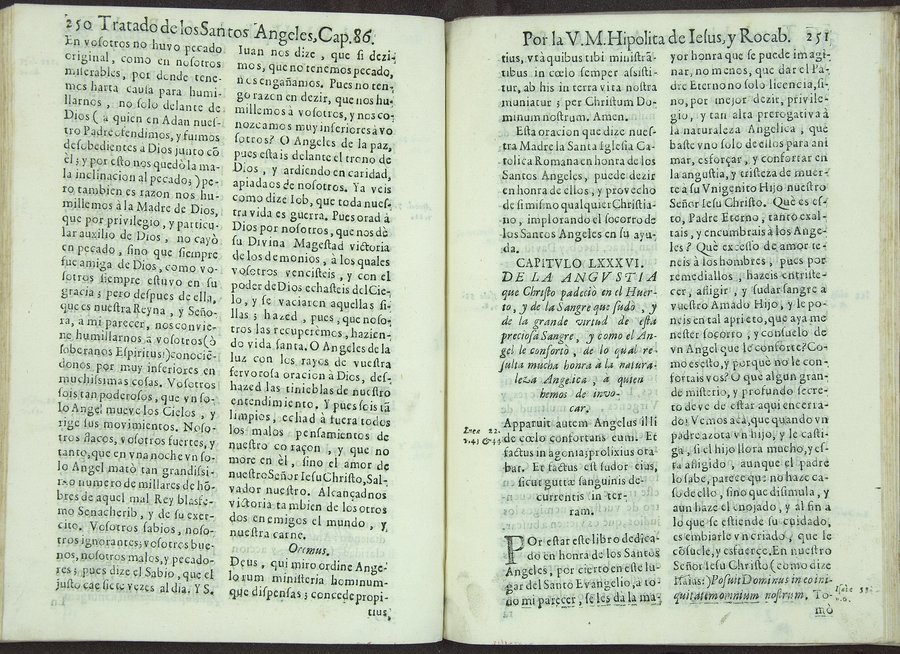 250 Tratado de los Santos Angeles, Cap. 86.
En vosotros no huvo pecado
original, como en nosotros
miserables, por donde tene-
mos harta causa para humi
llarnos, no solo delante de
Dios (a quien en Adan nues-
tro Padre ofendimos, y fuimos
desobedientes à Dios junto cõ
èl; y por esto nos quedò la ma-
la inclinacion al pecado;) pe-
ro tambien es razon nos hu-
millemos à la Madre de Dios,
que por privilegio, y particu-
lar auxilio de Dios, no cayò
en pecado, sino que siempre
fue amiga de Dios, como vo-
sotros siempre estuvo en su
gracia; pero despues de ella,
que es nuestra Reyna, y Seño-
ra, a mi parecer, nos convie-
ne humillarnos à vosotros (ò
soberanos Espiritus!) conociè-
donos por muy inferiores en
muchissimas cosas. Vosotros
sois tan poderosos, que vn so-
lo Angel mueve los Cielos, y
rige sus movimientos. Noso-
tros flacos, vosotros fuertes, y
tanto, que en vna noche vn so-
lo Angel matò tan grandissi-
mo numero de millares de hõ-
bres de aquel mal Rey blasfe-
mo Senacherib, y de su exer-
cito. Vosotros sabios, noso-
tros ignorantes; vosotros bue-
nos, nosotros malos, y pecado-
res; pues dize el Sabio, que el
justo cae siete vezes al dia. Y S.
Iuan nos dize, que si dezi-
mos, que no tenemos pecado,
nos engañamos. Pues no ten-
go razon en dezir, que nos hu-
millemos à vosotros, y nos co-
nozcamos muy inferiores à vo
sotros? O Angeles de la paz,
pues estais delante el trono de
Dios, y ardiendo en caridad,
apiadaos de nosotros. Ya veis
como dize Iob, que toda nues-
tra vida es guerra. Pues orad à
Dios por nosotros, que nos dè
su Divina Magestad victoria
de los demonios, à los quales
vosotros vencisteis, y con el
poder de Dios echasteis del Cie-
lo, y se vaciaron aquellas si-
llas; hazed, pues, que noso-
tros las recuperemos, hazien-
do vida santa. O Angeles de la
luz con los rayos de vuestra
fervorosa oracion à Dios, des-
hazed las tinieblas de nuestro
entendimiento. Y pues sois tã
limpios, echad à fuera todos
los malos pensamientos de
nuestro coraçon, y que no
more en èl, sino el amor de
nuestro Señor Iesu Christo, Sal-
vador nuestro. Alcançadnos
victoria tambien de los otros
dos enemigos el mundo, y
nuestra carne.
Oremus.
Deus, qui miro ordine Ange-
lorum ministeria hominum-
que dispensas; concede propi-
tius,
Por la V. M. Hipolita de Iesus, y Rocab. 251
tius, vt à quibus tibi ministrã-
tibus in cœlo semper assisti-
tur, ab his in terra vita nostra
muniatur; per Christum Do-
minum nostrum. Amen.
Esta oracion que dize nues-
tra Madre la Santa Iglesia Ca-
tolica Romana en honra de los
Santos Angeles, puede dezir
en honra de ellos, y provecho
de si mismo qualquier Christia-
no, implorando el socorro de
los Santos Angeles en su ayu-
da.
CAPITVLO LXXXVI.
DE LA ANGVSTIA
que Christo padeciò en el Huer-
to, y de la Sangre que sudò, y
de la grande virtud de esta
preciosa Sangre, y como el An-
gel le confortò, de lo qual re-
sulta mucha honra à la natura-
leza Angelica, a quien
hemos de invo-
car.
Luca 22.
v. 43 & 44
Apparuit autem Angelus illi
de cœlo confortans eum. Et
factus in agonia; prolixius ora
bat. Et factus est sudor eius,
sicut guttæ sanguinis de-
currentis in ter-
ram.
Por estar este libro dedica-
do en honra de los Santos
Angeles, por cierto en este lu-
gar del Santo Evangelio, a to-
do mi parecer, se les da la ma-
yor honra que se puede imagi-
nar, no menos, que dar el Pa-
dre Eterno no solo licencia, si-
no, por mejor dezir, privile-
gio, y tan alta prerogativa à
la naturaleza Angelica, que
baste vno solo de ellos para ani
mar, esforçar, y confortar en
la angustia, y tristeza de muer-
te a su Vnigenito Hijo nuestro
Señor Iesu Christo. Què es es-
to, Padre Eterno, tanto exal-
tais, y encumbrais à los Ange-
les? Què excesso de amor te-
neis à los hombres, pues por
remediallos, hazeis entriste-
cer, afligir, y sudar sangre a
vuestro Amado Hijo, y le po-
neis en tal aprieto, que aya mo
nester socorro; y consuelo de
vn Angel que le conforte? Co-
mo es esto, y porquè no le con-
fortais vos? O que algun gran-
de misterio, y profundo secre-
to deve de estar aqui encerra-
do! Vemos acà, que quando vn
padre azota vn hijo, y le casti-
ga, si el hijo llora mucho, y es-
ta afligido, aunque el padre
lo sabe, parece que no haze ca-
so de ello, sino que dissimula, y
aun haze el enojado, y al fin a
lo que se estiende su cuidado,
es embiarle vn criado, que le
cõsuele, y esfuerce. En nuestro
Señor Iesu Christo (como dize
Isaias:) Posuit Dominus in eo ini-
quitatem omnium nostrum. To-
Isaiæ 53.
v. 6.
mò